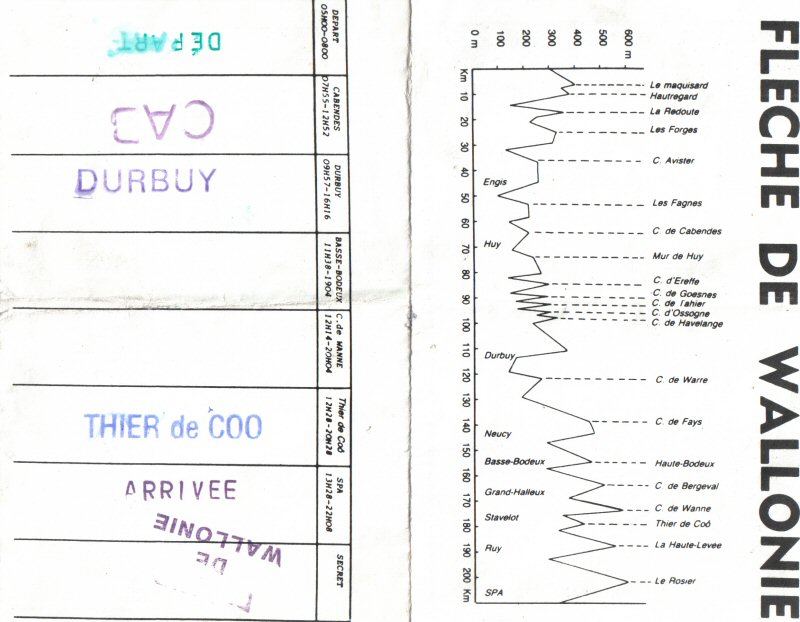 FLECHE DE WALLONIE
600 m
500
400
300
200
100
0 m
Km
10
20
30
40
50
60
70
80
90
100
110
120
130
140
150
160
170
180
190
200
Km
Le maquisard
Hautregard
La Redoute
Les Forges
C. Avister
Les Fagnes
C. de Cabendes
Mur de Huy
C. d'Ereffe
C. de Goesnes
C. de Tahier
C. d'Ossogne
C. de Havelange
C. de Warre
C. de Fays
Haute-Bodeux
C. de Bergeval
C. de Wanne
Thier de Coô
La Haute-Levée
Le Rosier
Engis
Huy
Durbuy
Neucy
Basse-Bodeux
Grand-Halleux
Stavelot
Ruy
SPA
DEPART
05H00-0800
DÉPART
CABENDES
07H55-12H52
CA3
DURBUY
09H57-16H16
DURBUY
BASSE-BODEUX
11H38-1904
C.de WANNE
12H14-20H04
Thier de Coô
12H28-20H28
THIER de COO
SPA
13H28-22H08
ARRIVEE
SECRET
DE
WALLONIE